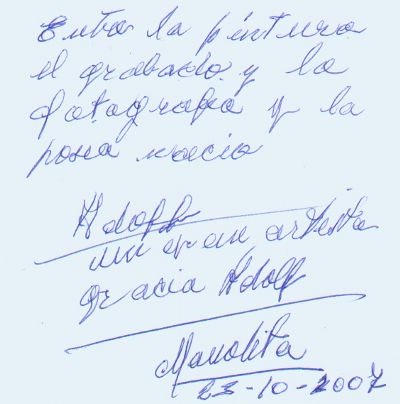 Entre la pintura
el grabado y la
fotografia y la
posia nacio
Adolf
un gran artista
gracia Adolf
Manolita
23-10-2007